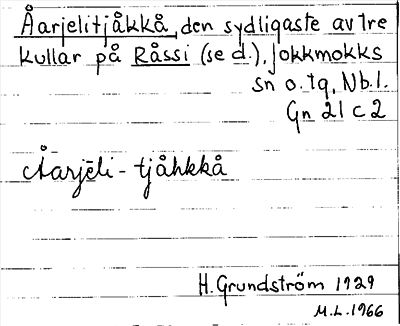 Åarjelitjåkkå, den sydligaste av tre
kullar på Råssi (se d.), Jokkmokks
sn o. tq, Nb.l.
Gn 21 c 2
Åarjēli-tjåhkkå
H. Grundström 1929
M.L. 1966